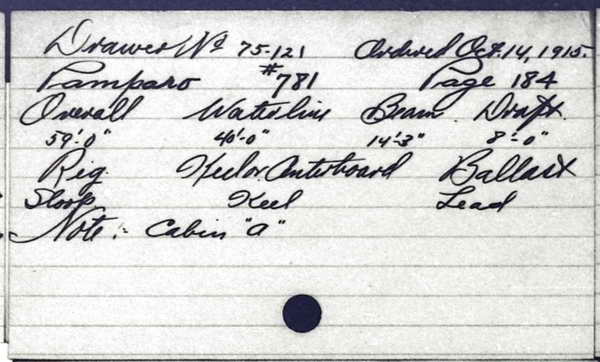 Drawer No 75-121 Ordered Oct. 14, 1915.
Pamparo #781 Page 184
Overall Waterline Beam Draft
59'-0" 40'-0" 14'-3" 8'-0"
Rig. Keel or Centerboard Ballast
Sloop Keel Lead
Note: Cabin "a"